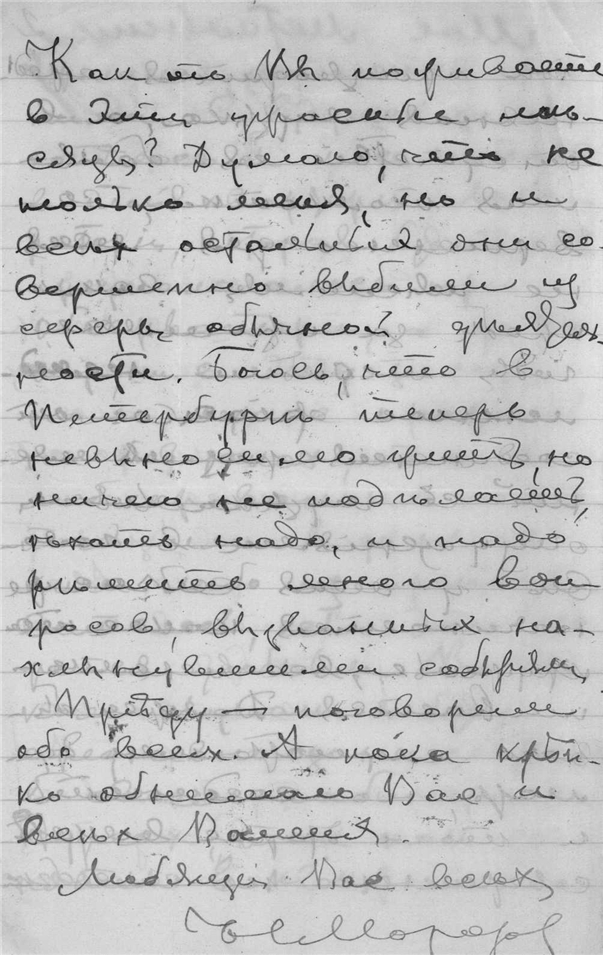 Как то Вы поживаете
в эти красные мѣ-
сяцы? Думаю, что не
только меня, но и
всѣх остальных они со-
вершенно выбили из
сферы обычной дѣятель-
ности. Боюсь, что в
Петербургѣ теперь
невыносимо жить, но
ничего не подѣлаешь,
ѣхать надо, и надо
рѣшить много воп
росов, вызванных на-
хлынувшими событиями
Приѣду — поговорим
обо всем. А пока крѣп-
ко обнимаю Вас и
всѣх Ваших.
Любящий Вас всѣх
Н Морозов